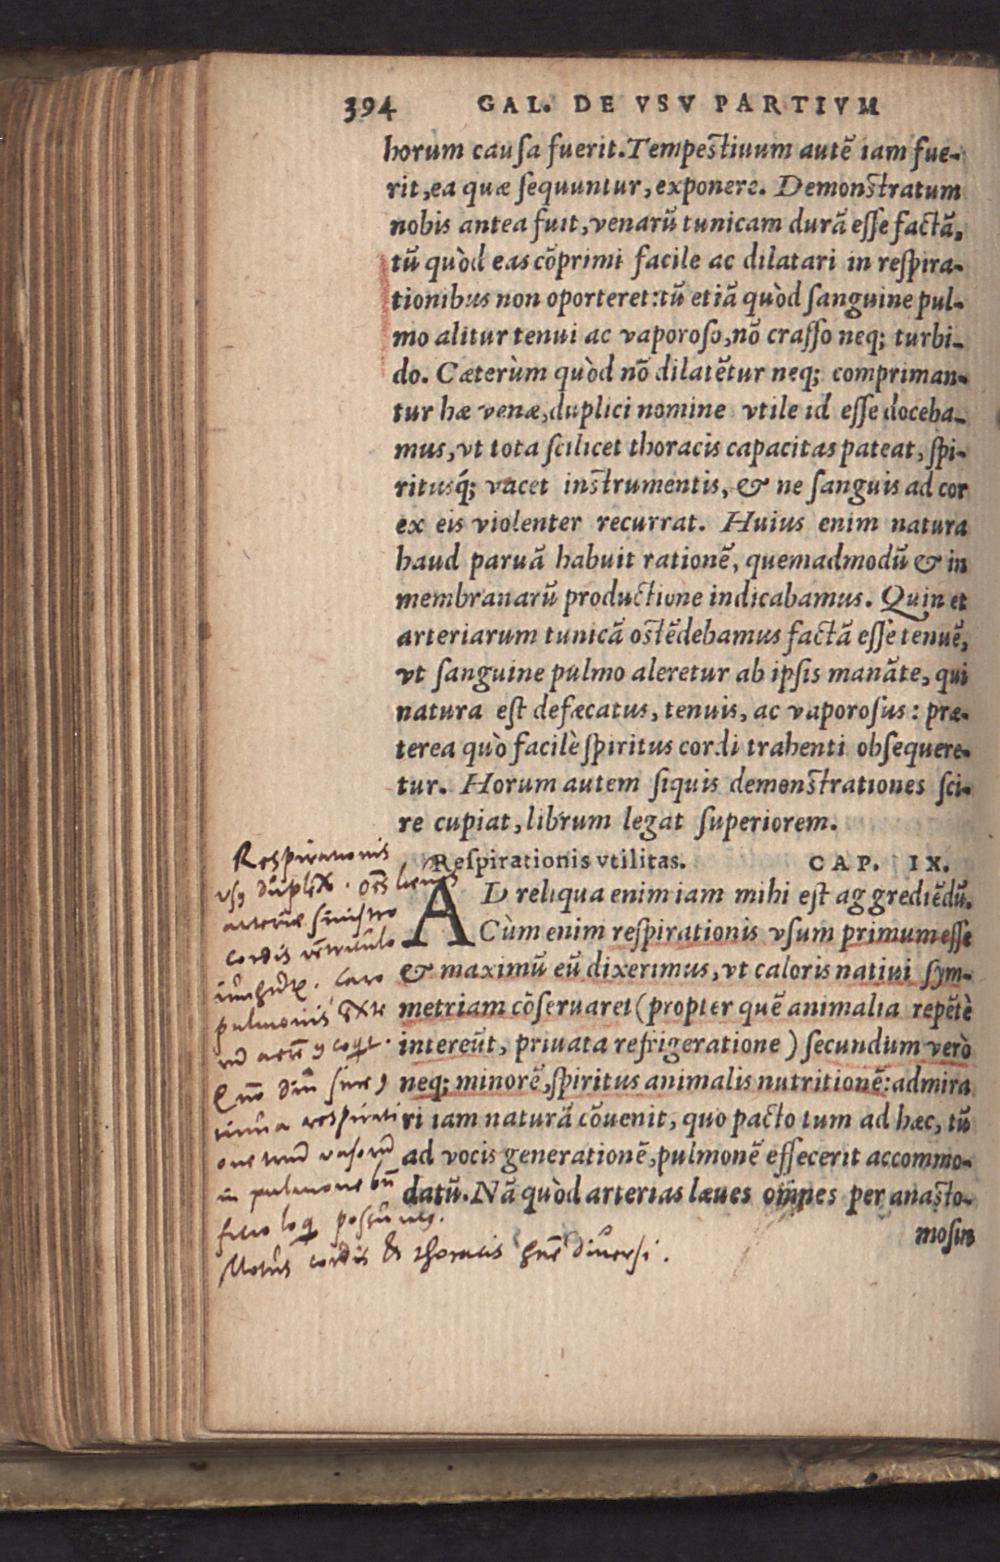 394 GAL. DE VSV PARTIVM
horum causa fuerit. Tempestiuum autẽ iam fue-
rit, ea quæ sequuntur, exponere. Demonstratum
nobis antea fuit, venarũ tunicam durã esse factã,
tũ quòd eas cõprimi facile ac dilatari in respira-
tionibus non oporteret: tũ etiã quòd sanguine pul-
mo alitur tenui ac vaporoso, nõ crasso neq; turbi-
do. Cæterùm quòd nõ dilatẽtur neq; compriman-
tur hæ venæ, duplici nomine vtile id esse doceba-
mus, vt tota scilicet thoracis capacitas pateat, spi-
ritusq́; vacet instrumentis, & ne sanguis ad cor
ex eis violenter recurrat. Huius enim natura
haud paruã habuit rationẽ, quemadmodũ & in
membranarũ productione indicabamus. Quin et
arteriarum tunicã ostẽdebamus factã esse tenuẽ,
vt sanguine pulmo aleretur ab ipsis manãte, qui
natura est defæcatus, tenuis, ac vaporosus: præ-
terea quò facilè spiritus cordi trahenti obsequere-
tur. Horum autem siquis demonstrationes sci-
re cupiat, librum legat superiorem.
Respirationis vtilitas. CAP. IX.
AD reliqua enim iam mihi est aggrediẽdũ.
Cùm enim respirationis vsum primum esse
& maximũ eũ dixerimus, vt caloris natiui sym-
metriam cõseruaret (propter quẽ animalia repẽtè
intereũt, priuata refrigeratione) secundum verò
neq; minorẽ, spiritus animalis nutritionẽ: admira
ri iam naturã cõuenit, quo pacto tum ad hæc, tũ
ad vocis generationẽ, pulmonẽ effecerit accommo-
datũ. Nã quòd arterias læues omnes per anasto-
mosin
Respirationis
duplex
arteriæ sinistro
cordis
caro
pulmonis
respirati
in pulmone
Motus cordis & thoracis diuersi.